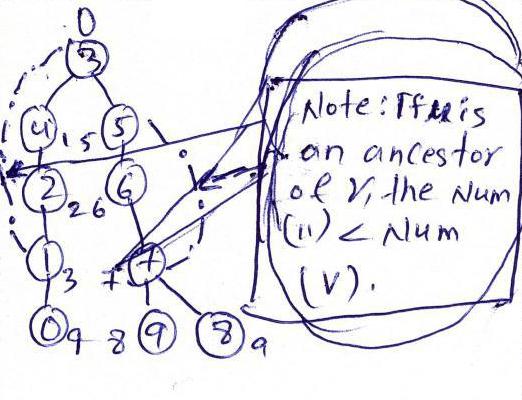 0
3
4 1 5 5
2 2 6 6
1 3 7 7
0 4 8 9 8 9
Note: If u is
an ancestor
of v, the Num
(u) < Num
(v).